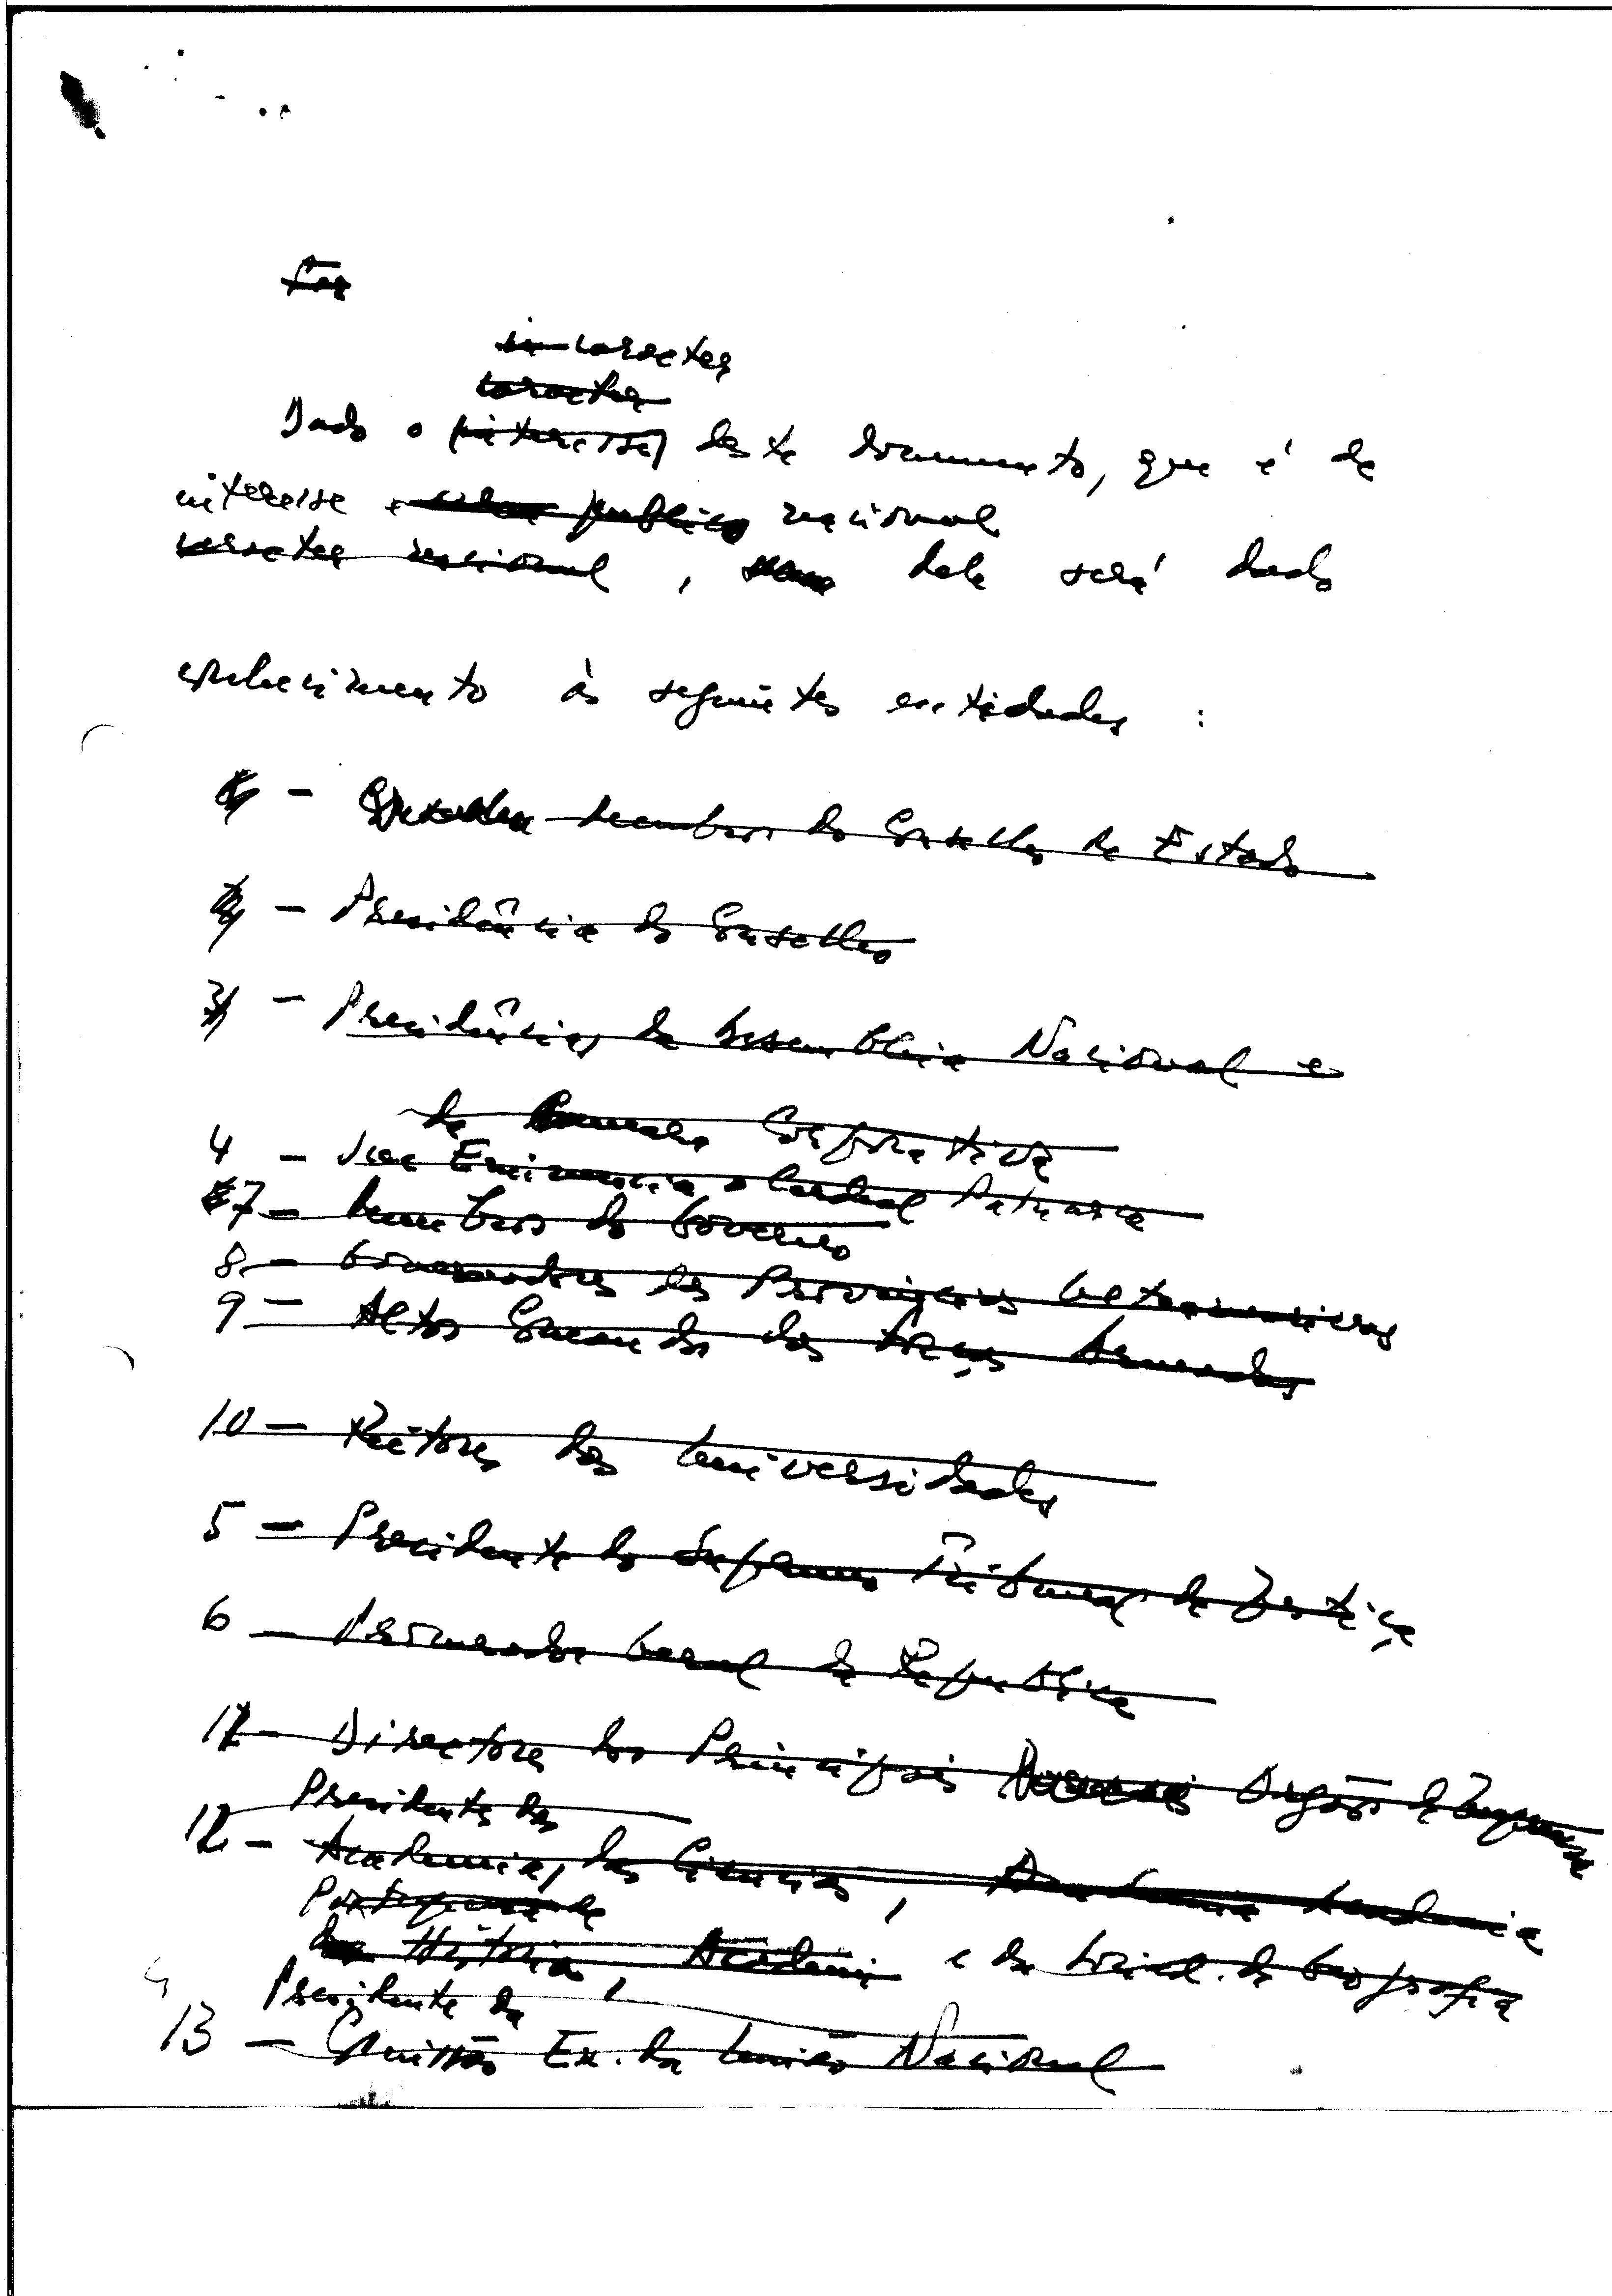 caracter
caracter
Dado o (interesse) deste documento, que é de
interesse e publico nacional
caracter nacional, dele será dado
conhecimento às seguintes entidades :
1 - Membros do Conselho de Estado
2 - Presidência do Conselho
3 - Presidência, da Assembleia Nacional e
da Camara Corporativa
4 - Sua Eminencia o Cardeal Patriarca
7 - Membros do Governo
8 - Governadores das Provincias Ultramarinas
9 - Altos Comandos das Forças Armadas
10 - Reitores das Universidades
5 - Presidente do Supremo Tribunal de Justiça
6 - Procurador Geral da Republica
11 - Directores dos Principais Orgãos da Imprensa
Presidentes das
12 - Academia, das Ciencias, Academia
Portuguesa de
da História, Academia e da Socied. de Geografia
Presidente da
13 - Comissão Ex. da União Nacional